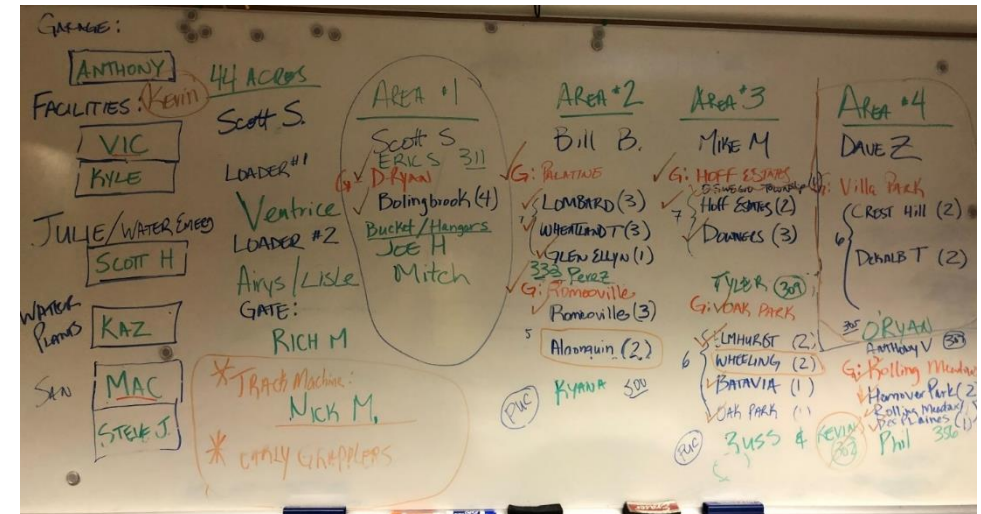 GARAGE:
ANTHONY
FACILITIES: Kevin
VIC
KYLE
JULIE/WATER EMERG
SCOTT H
WATER PLANTS
KAZ
SAN
MAC
STEVE J.
44 ACRES
Scott S.
LOADER #1
Ventrice
LOADER #2
Airys/Lisle
GATE:
RICH M
* TRACK Machine:
NICK M.
* EARLY GRAPPLERS
AREA #1
Scott S
ERIC S 311
G: D-RYAN
Bolingbrook (4)
Bucket/Hangers
JOE H
Mitch
AREA #2
Bill B.
G: PALATINE
LOMBARD (3)
7 WHEATLAND T (3)
GLEN ELLYN (1)
333 Perez
G: Romeoville
Romeoville (3)
5
Algonquin (2)
PUC KYANA 500
AREA #3
MIKE M
G: HOFF ESTATES
OSWEGO TOWNSHIP
7 Hoff ESTATES (2)
DOWNERS (3)
TYLER 309
G: OAK PARK
ELMHURST (2)
6 WHEELING (2)
BATAVIA (1)
OAK PARK
PUC RUSS & KEVIN
AREA #4
DAVE Z
G: Villa PARK
CREST Hill (2)
6
DEKALB T (2)
305 O'RYAN
ANTHONY V
G: Rolling Meadows
Hanover Park (2
Rolling Meadows
Des Plaines (1)
Phil 356